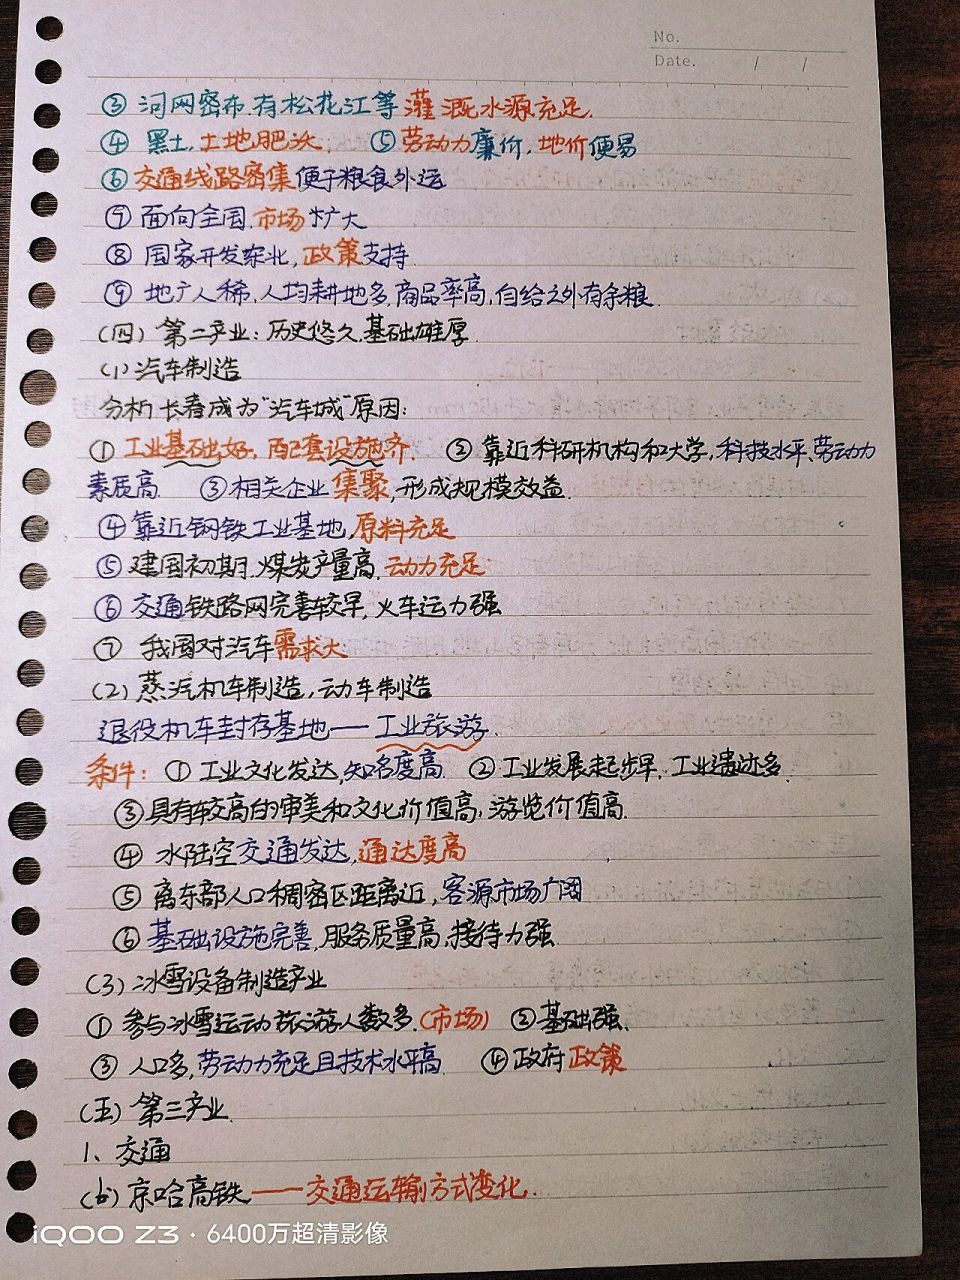 No.
Date. / /
③ 河网密布.有松花江等灌溉水源充足.
④ 黑土,土地肥沃 ⑤劳动力廉价,地价便易
⑥ 交通线路密集便于粮食外运
⑦ 面向全国.市场扩大
⑧ 国家开发东北,政策支持.
⑨ 地广人稀,人均耕地多,商品率高,自给之外有余粮.
(四) 第二产业:历史悠久,基础雄厚.
(1)汽车制造
分析长春成为“汽车城”原因:
① 工业基础好,配套设施齐. ② 靠近科研机构和大学,科技水平.劳动力
素质高. ③相关企业集聚,形成规模效益.
④ 靠近钢铁工业基地,原料充足
⑤ 建国初期.煤炭产量高.动力充足
⑥ 交通铁路网完善较早,火车运力强
⑦ 我国对汽车需求大
(2)蒸汽机车制造,动车制造
退役机车封存基地——工业旅游.
条件: ① 工业文化发达,知名度高. ②工业发展起步早,工业遗迹多.
③具有较高的审美和文化价值高,游览价值高.
④ 水陆空交通发达,通达度高
⑤ 离东部人口稠密区距离近,客源市场广阔
⑥ 基础设施完善,服务质量高,接待力强.
(3)冰雪设备制造产业
① 参与冰雪运动旅游人数多.(市场) ②基础强.
③ 人口多,劳动力充足且技术水平高. ④政府政策
(五) 第三产业.
1、交通
(b)京哈高铁——交通运输方式变化.
iQOO Z3 · 6400万超清影像